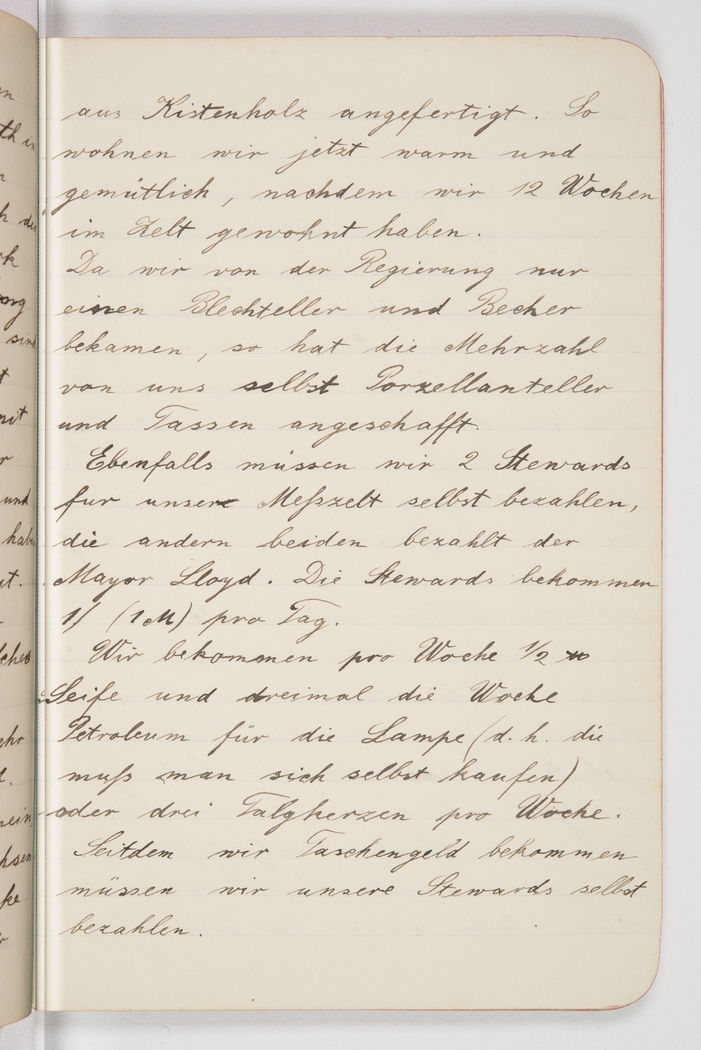 aus Kistenholz angefertigt. So
wohnen wir jetzt warm und
gemütlich, nachdem wir 12 Wochen
im Zelt gewohnt haben.
Da wir von der Regierung nur
einen Blechteller und Becher
bekamen, so hat die Mehrzahl
von uns selbst Porzellanteller
und Tassen angeschafft.
Ebenfalls müssen wir 2 Stewards
fur unsere Meßzelt selbst bezahlen,
die andern beiden bezahlt der
Mayor Lloyd. Die Stewards bekommen
1/ (1M) pro Tag.
Wir bekommen pro Woche 1/2 ℔
Seife und dreimal die Woche
Petroleum für die Lampe (d. h. die
muß man sich selbst kaufen)
oder drei Talgkerzen pro Woche.
Seitdem wir Taschengeld bekommen
müssen wir unsere Stewards selbst
bezahlen.